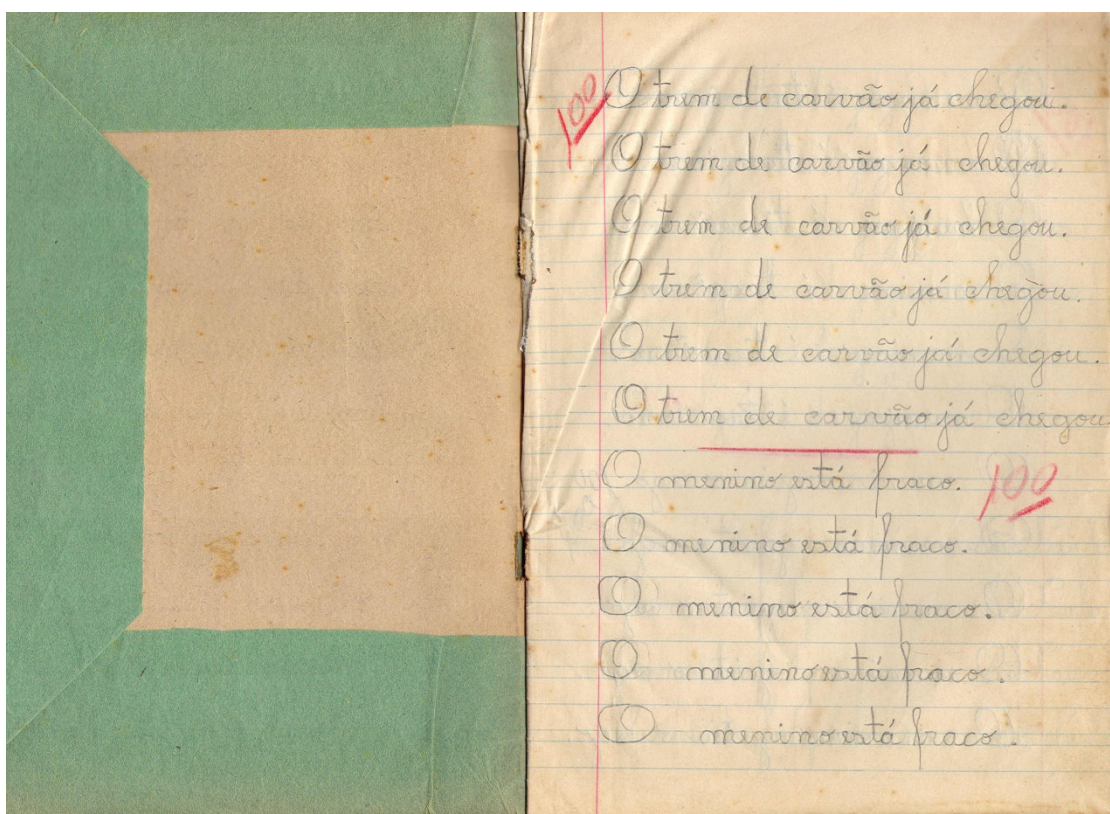 100
O trem de carvão já chegou.
O trem de carvão já chegou.
O trem de carvão já chegou.
O trem de carvão já chegou.
O trem de carvão já chegou.
O trem de carvão já chegou
O menino está fraco. 100
O menino está fraco.
O menino está fraco.
O menino está fraco.
O menino está fraco.